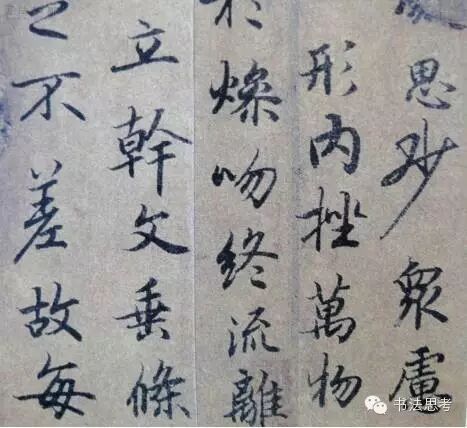 思眇衆慮
形内挫萬物
於燥吻終流離
立幹文垂條
之不差故每
书法思考